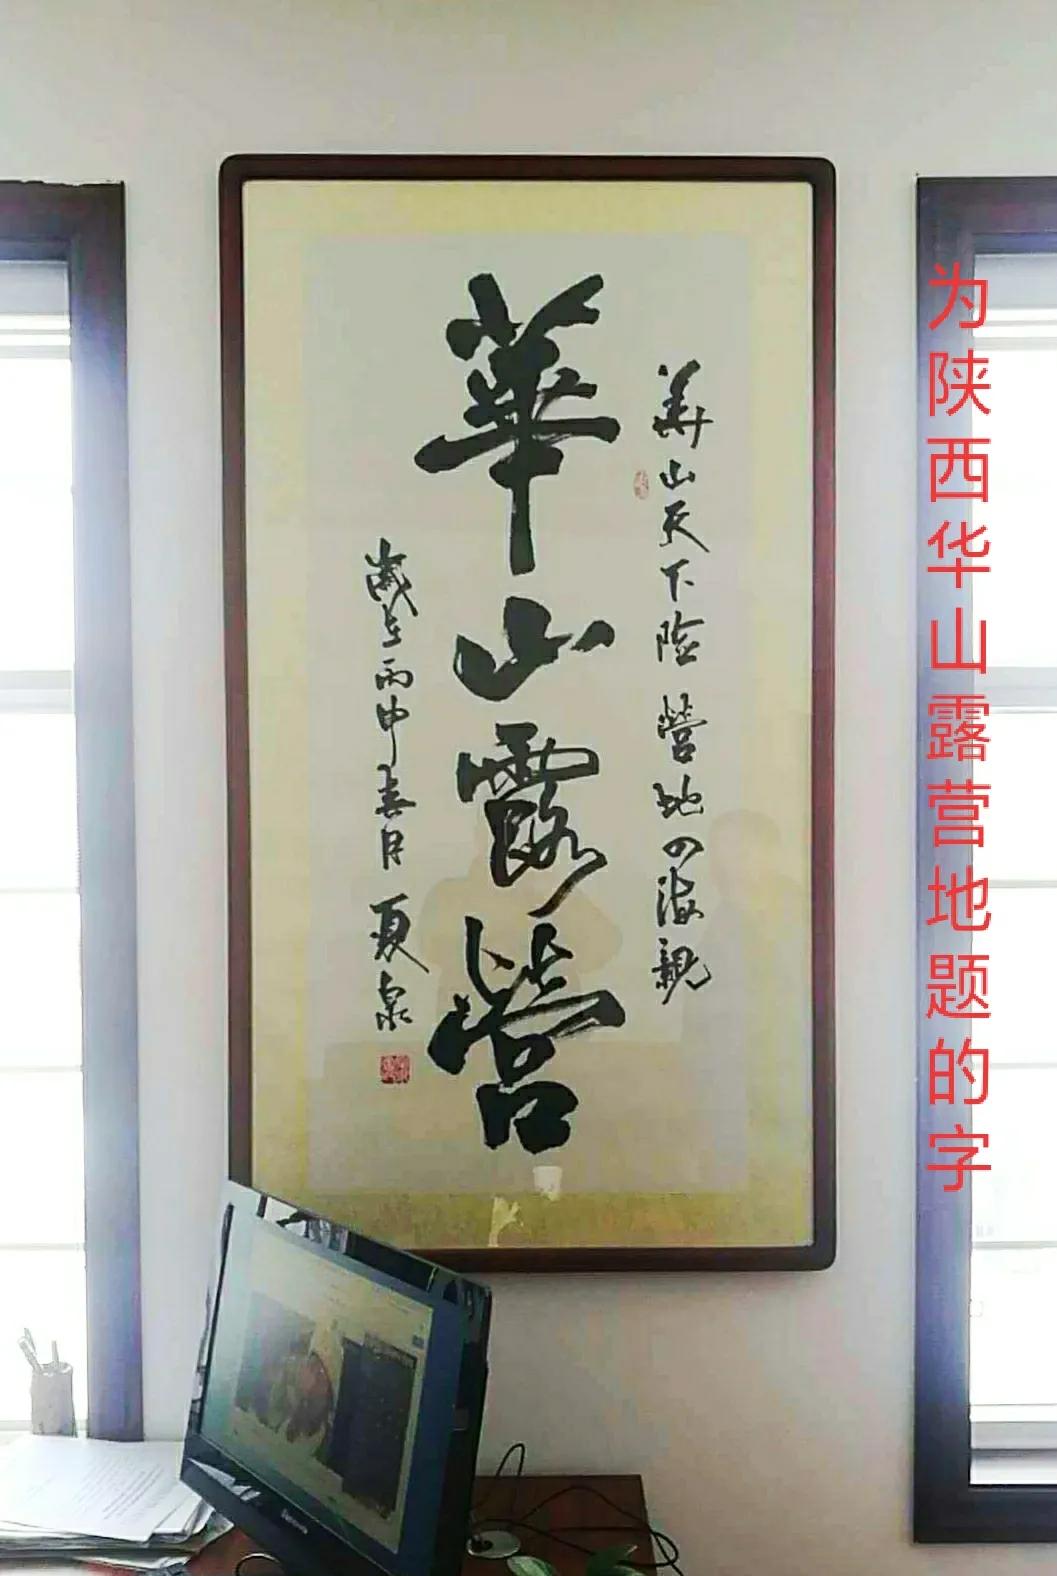 为陕西华山露营地题的字
华山天下险 营地四海親
華山露營
歲在丙申春月 夏泉